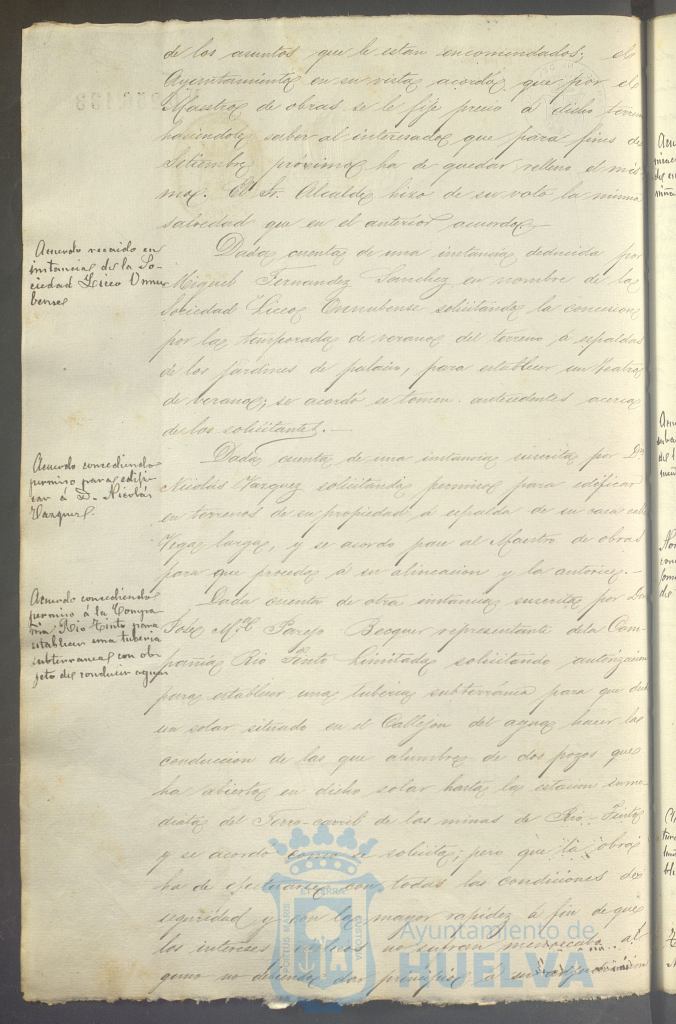 de los asuntos que le estan encomendados; el
Ayuntamiento en su vista acordó que por el
Maestro de obras se le fije precio á dicho terreno
haciendole saber al interesado que para fines de
Setiembre próximo ha de quedar relleno el mis-
mo. El Sr. Alcalde hizo de su voto la misma
salvedad que en el anterior acuerdo.
Acuerdo recaido en
instancia de la So-
ciedad Liceo Onnu-
bense
Dada cuenta de una instancia deducida por
Miguel Fernandez Sanchez en nombre de la
Sociedad Liceo Onnubense solicitando la concesion
por la temporada de verano del terreno á espaldas
de los jardines de palacio, para establecer un Teatro
de verano; se acordó se tomen antecedentes acerca
de los solicitantes.—
Acuerdo concediendo
permiso para edifi-
car á D. Nicolás
Vazquez.
Dada cuenta de una instancia suscrita por Dn
Nicolás Vazquez solicitando permiso para edificar
en terrenos de su propiedad á espalda de su casa calle
Vega larga, y se acordo pase al Maestro de obras
para que proceda á su alineacion y la autorice.—
Acuerdo concediendo
permiso á la Compa-
ñia Rio Tinto para
establecer una tuberia
subterranea con ob-
jeto de conducir aguas
Dada cuenta de otra instancia suscrita por Don
José Mª Parejo Becquer representante de la Com-
pañia Rio Tinto Limitada solicitando autorizacion
para establecer una tuberia subterránea para que desde
un solar situado en el Callejon del agua hacer la
conduccion de las que alumbra de dos pozos que
ha abierto en dicho solar hasta la estacion inme-
diata del Ferro-carril de las minas de Rio-Tinto
y se acordo como se solicita; pero que la obra
ha de efectuarse con todas las condiciones de
seguridad y con la mayor rapidez á fin de que
los intereses no sufran menoscabo al
guno no debiendo dar principio á su
Ayuntamiento de
HUELVA